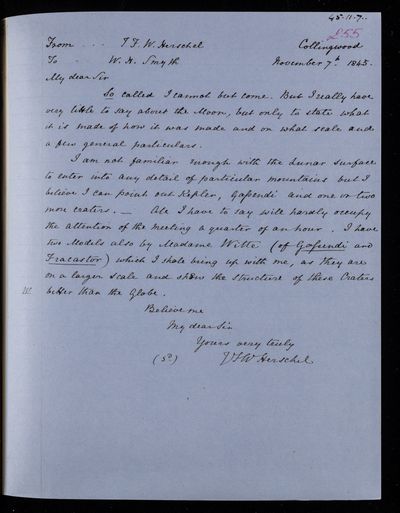 45.11.7..
£55
From . . . J. F. W. Herschel Collingwood
To . W. H. Smyth November 7th 1845.
My dear Sir
So called I cannot but come. But I really have
very little to say about the Moon, but only to state what
it is made of how it was made and on what scale and
a few general particulars.
I am not familiar enough with the Lunar surface
to enter into any detail of particular mountains but I
believe I can point out Kepler, Gassendi and one or two
more craters. — All I have to say will hardly occupy
the attention of the meeting a quarter of an hour. I have
two Models also by Madame Witte (of Gassendi and
Fracastor) which I shall bring up with me, as they are
on a larger scale and show the structure of these Craters
better than the Globe.
Believe me
My dear Sir
Yours very truly
(sd) J F W Herschel